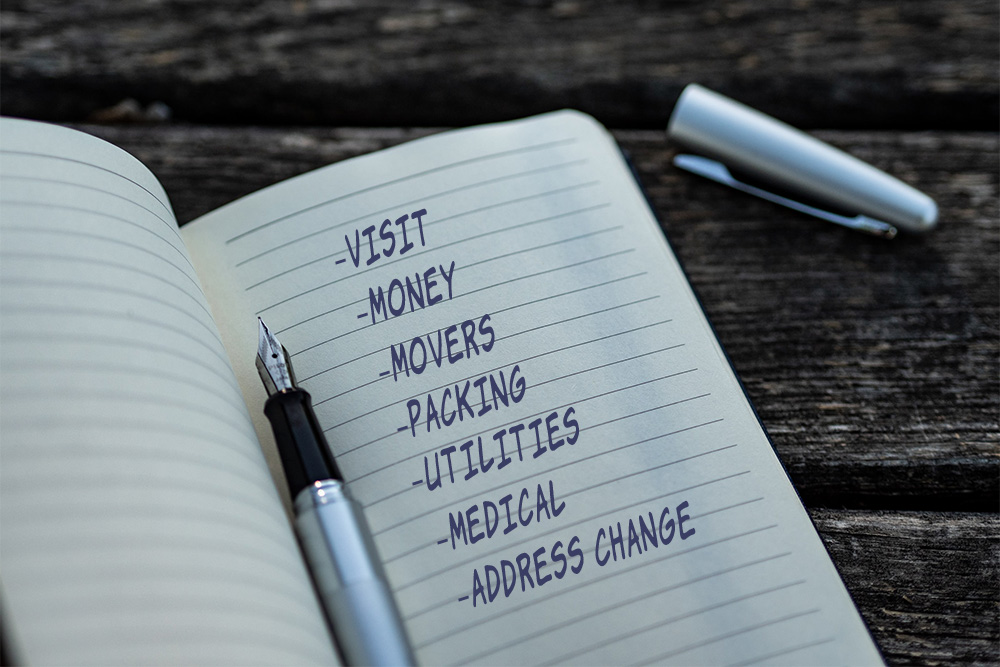 -VISIT
-MONEY
-MOVERS
-PACKING
-UTILITIES
-MEDICAL
-ADDRESS CHANGE